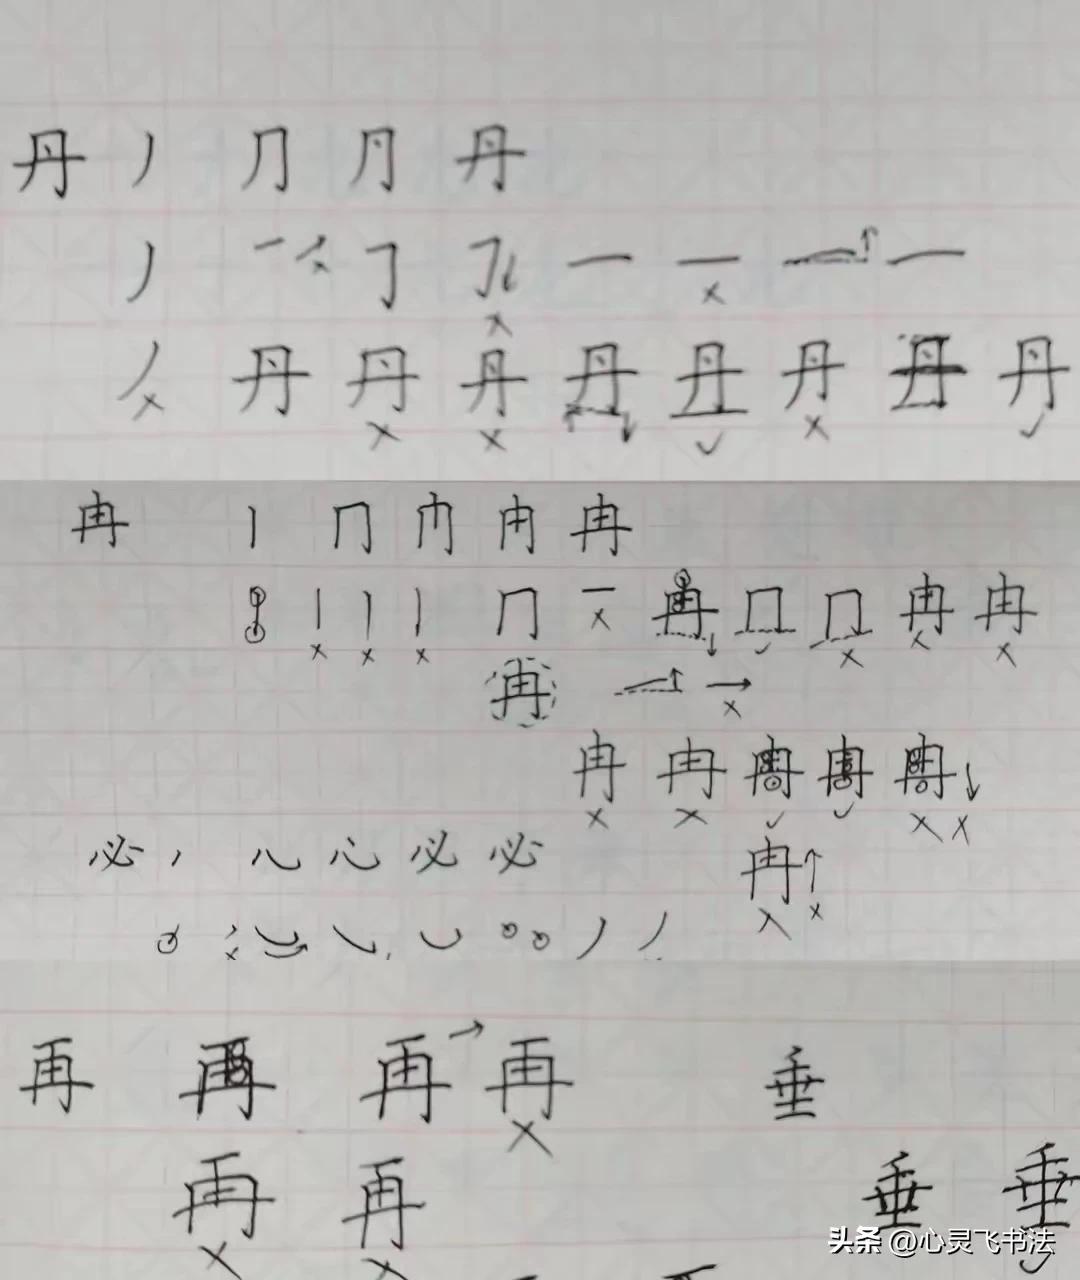 丹 丿 ⺆ 月 丹
丿 一 × ㇆ × 一 一 × 一
丿 × 丹 丹 × 丹 × 丹 丹 ✓ 丹 × 丹 丹 ✓
冉 丨 冂 冉 冉
丨 丨 × 丨 × 丨 × 冂 一 × 冉 冂 ✓ 冂 × 冉 × 冉 ×
冉 → ×
冉 × 冉 × 冉 ✓ 冉 ✓ 冉 × ×
必 丶 心 必 必
冉 × ×
丿 丿
再 再 再 再 × 垂
再 × 再 × 垂 垂
头条 @心灵飞书法